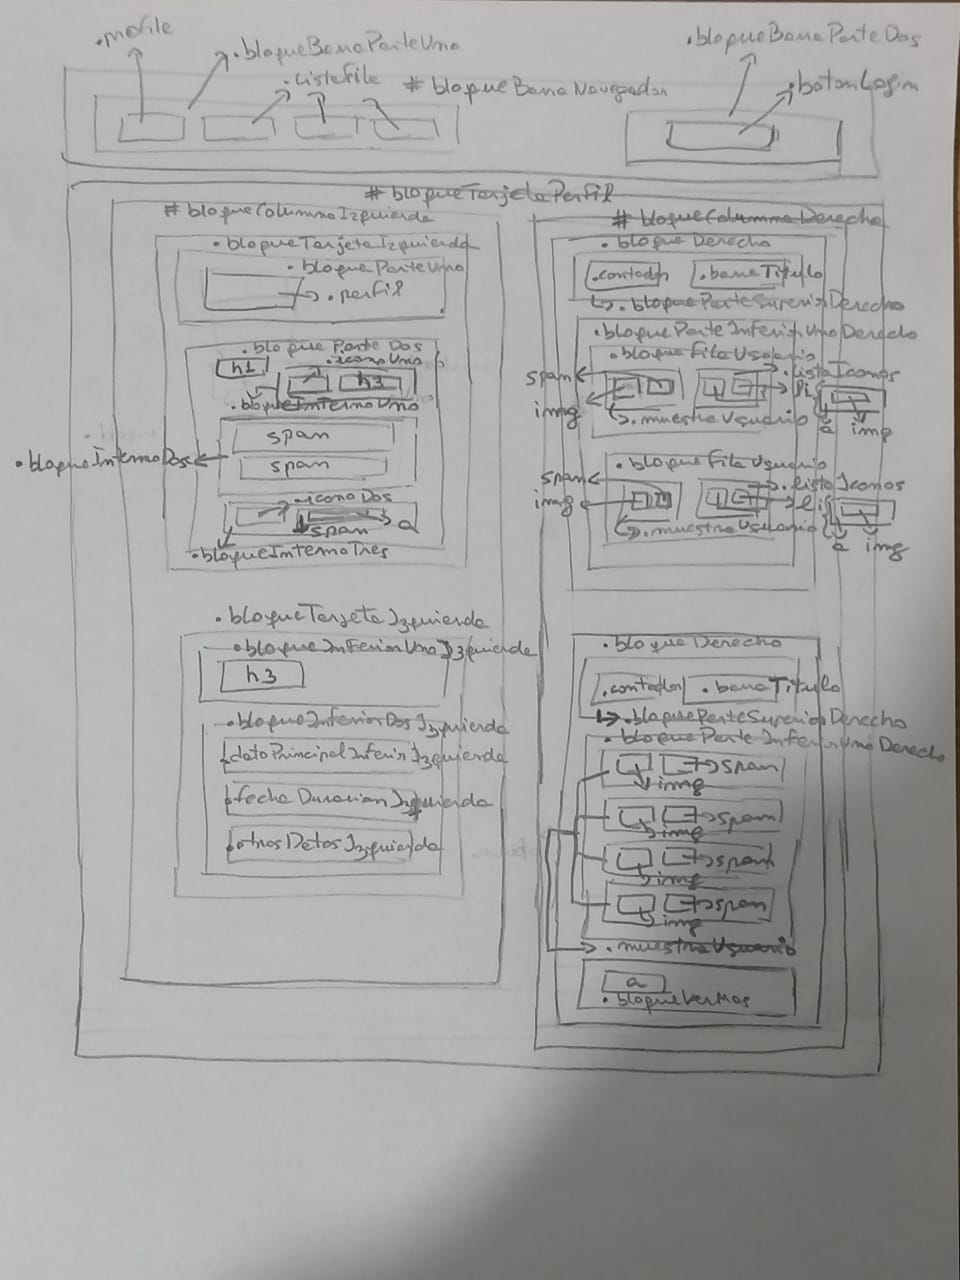 .profile
.bloqueBarraParteUno
.listaFile
#bloqueBarraNavegador
.bloqueBarraParteDos
.botonLogin
#bloqueTarjetaPerfil
#bloqueColumnaIzquierda
.bloqueTarjetaIzquierda
.bloqueParteUno
.perfil
.bloqueParteDos
h1
.iconoUno
h3
.bloqueInternoUno
span
span
.bloqueInternoDos
.iconoDos
span
a
.bloqueInternoTres
.bloqueTarjetaIzquierda
.bloqueInferiorUnoIzquierda
h3
.bloqueInferiorDosIzquierda
.datoPrincipalInferiorIzquierda
.fechaDuracionIzquierda
.otrosDatosIzquierda
#bloqueColumnaDerecha
.bloqueDerecho
.contador
.barraTitulo
.bloqueParteSuperiorDerecho
.bloqueParteInferiorUnoDerecho
.bloqueFilaUsuario
span
.listaIconos
li
img
.muestraUsuario
a
img
.bloqueFilaUsuario
span
.listaIconos
img
li
.muestraUsuario
a
img
.bloqueDerecho
.contador
.barraTitulo
.bloqueParteSuperiorDerecho
.bloqueParteInferiorUnoDerecho
span
img
span
img
span
img
span
img
.muestraUsuario
a
.bloqueVerMas